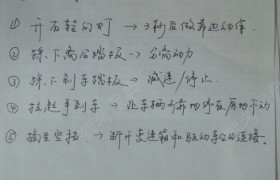 ① 开右转向灯 → 3秒后做靠边动作.
② 踩下离合踏板 → 分离动力
③ 踩下刹车踏板 → 减速/停止.
④ 拉起手刹 → 让车辆可靠的停在原地不动
⑤ 摘至空挡. → 断开变速箱和驱动车轮的连接.